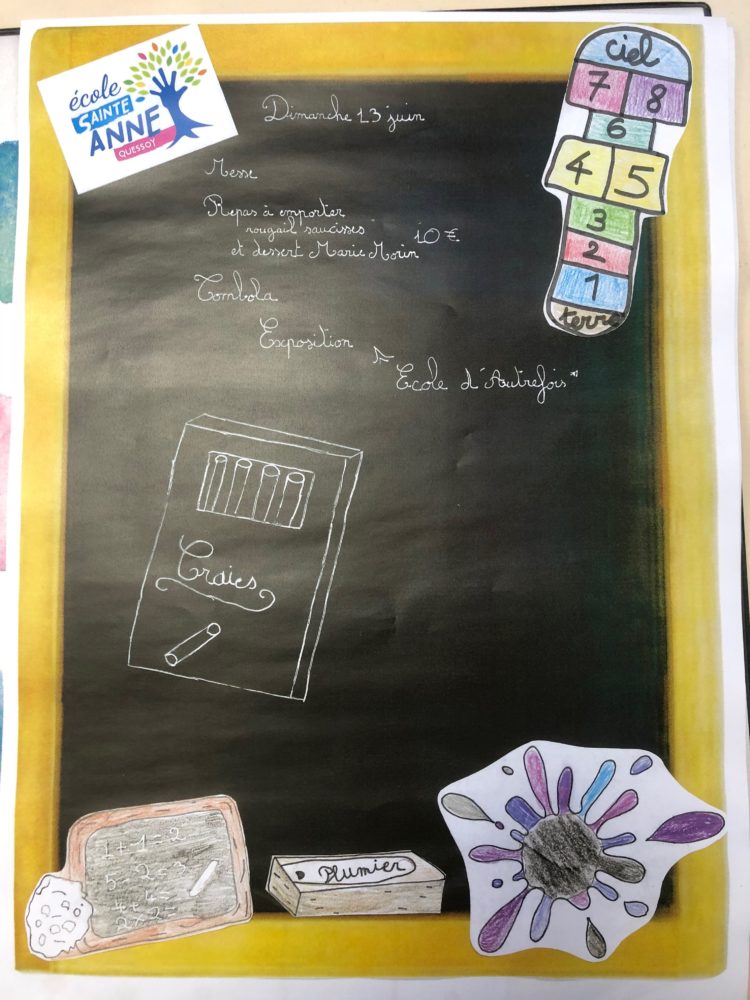 école
SAINTE
ANNE
QUESSOY
Dimanche 13 juin
Messe
Repas à emporter
rougail saucisses 10 €
et dessert Marie Morin
Tombola
Exposition
"Ecole d'Autrefois"
ciel
7 8
6
4 5
3
2
1
terre
Craies
1+1=2
5-2=3
Plumier